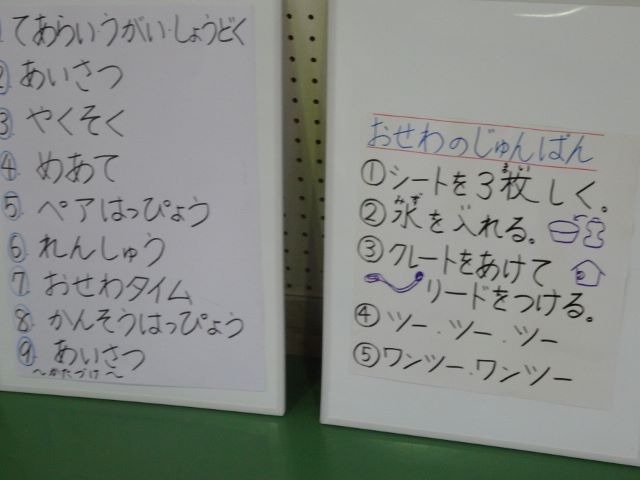 ① てあらい・うがい・しょうどく
② あいさつ
③ やくそく
④ めあて
⑤ ペアはっぴょう
⑥ れんしゅう
⑦ おせわタイム
⑧ かんそうはっぴょう
⑨ あいさつ
～かたづけ～
おせわのじゅんばん
まい
①シートを3枚しく。
みず
②水を入れる。
③クレートをあけて
リードをつける。
④ツー.ツー.ツー
⑤ワンツー.ワンツー